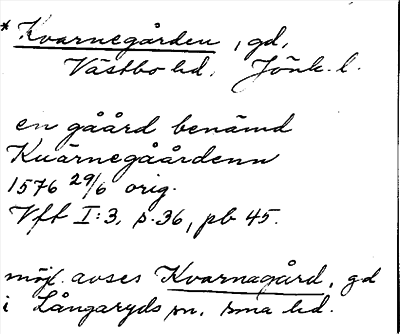 * Kvarnegården, gd,
Västbo hd. Jönk. l.
en gåård benämd
Kuärnegåårdenn
1576 29/6 orig.
Vftf I:3, s. 36, pb 45.
möjl. avses Kvarnagård, gd
i Långaryds sn, sma hd.